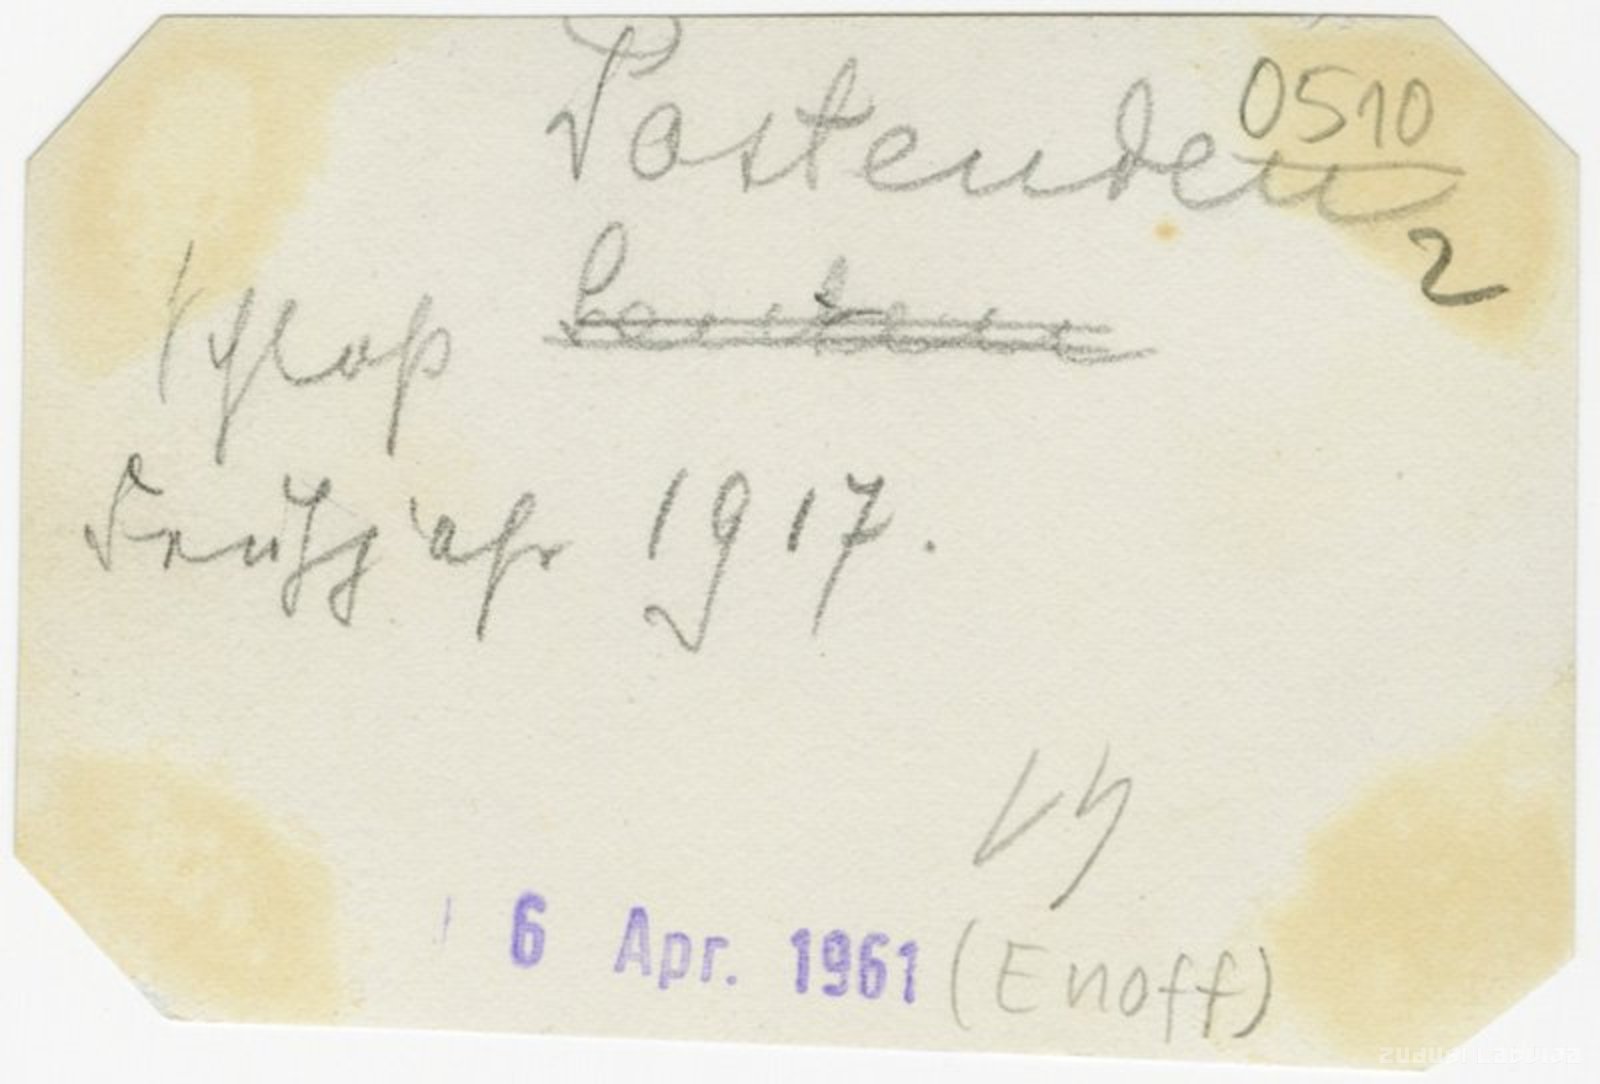 0510
Postenden
2
Schloß
Frühjahr 1917.
6 Apr. 1961 (Enoff)
zudusi Latvija